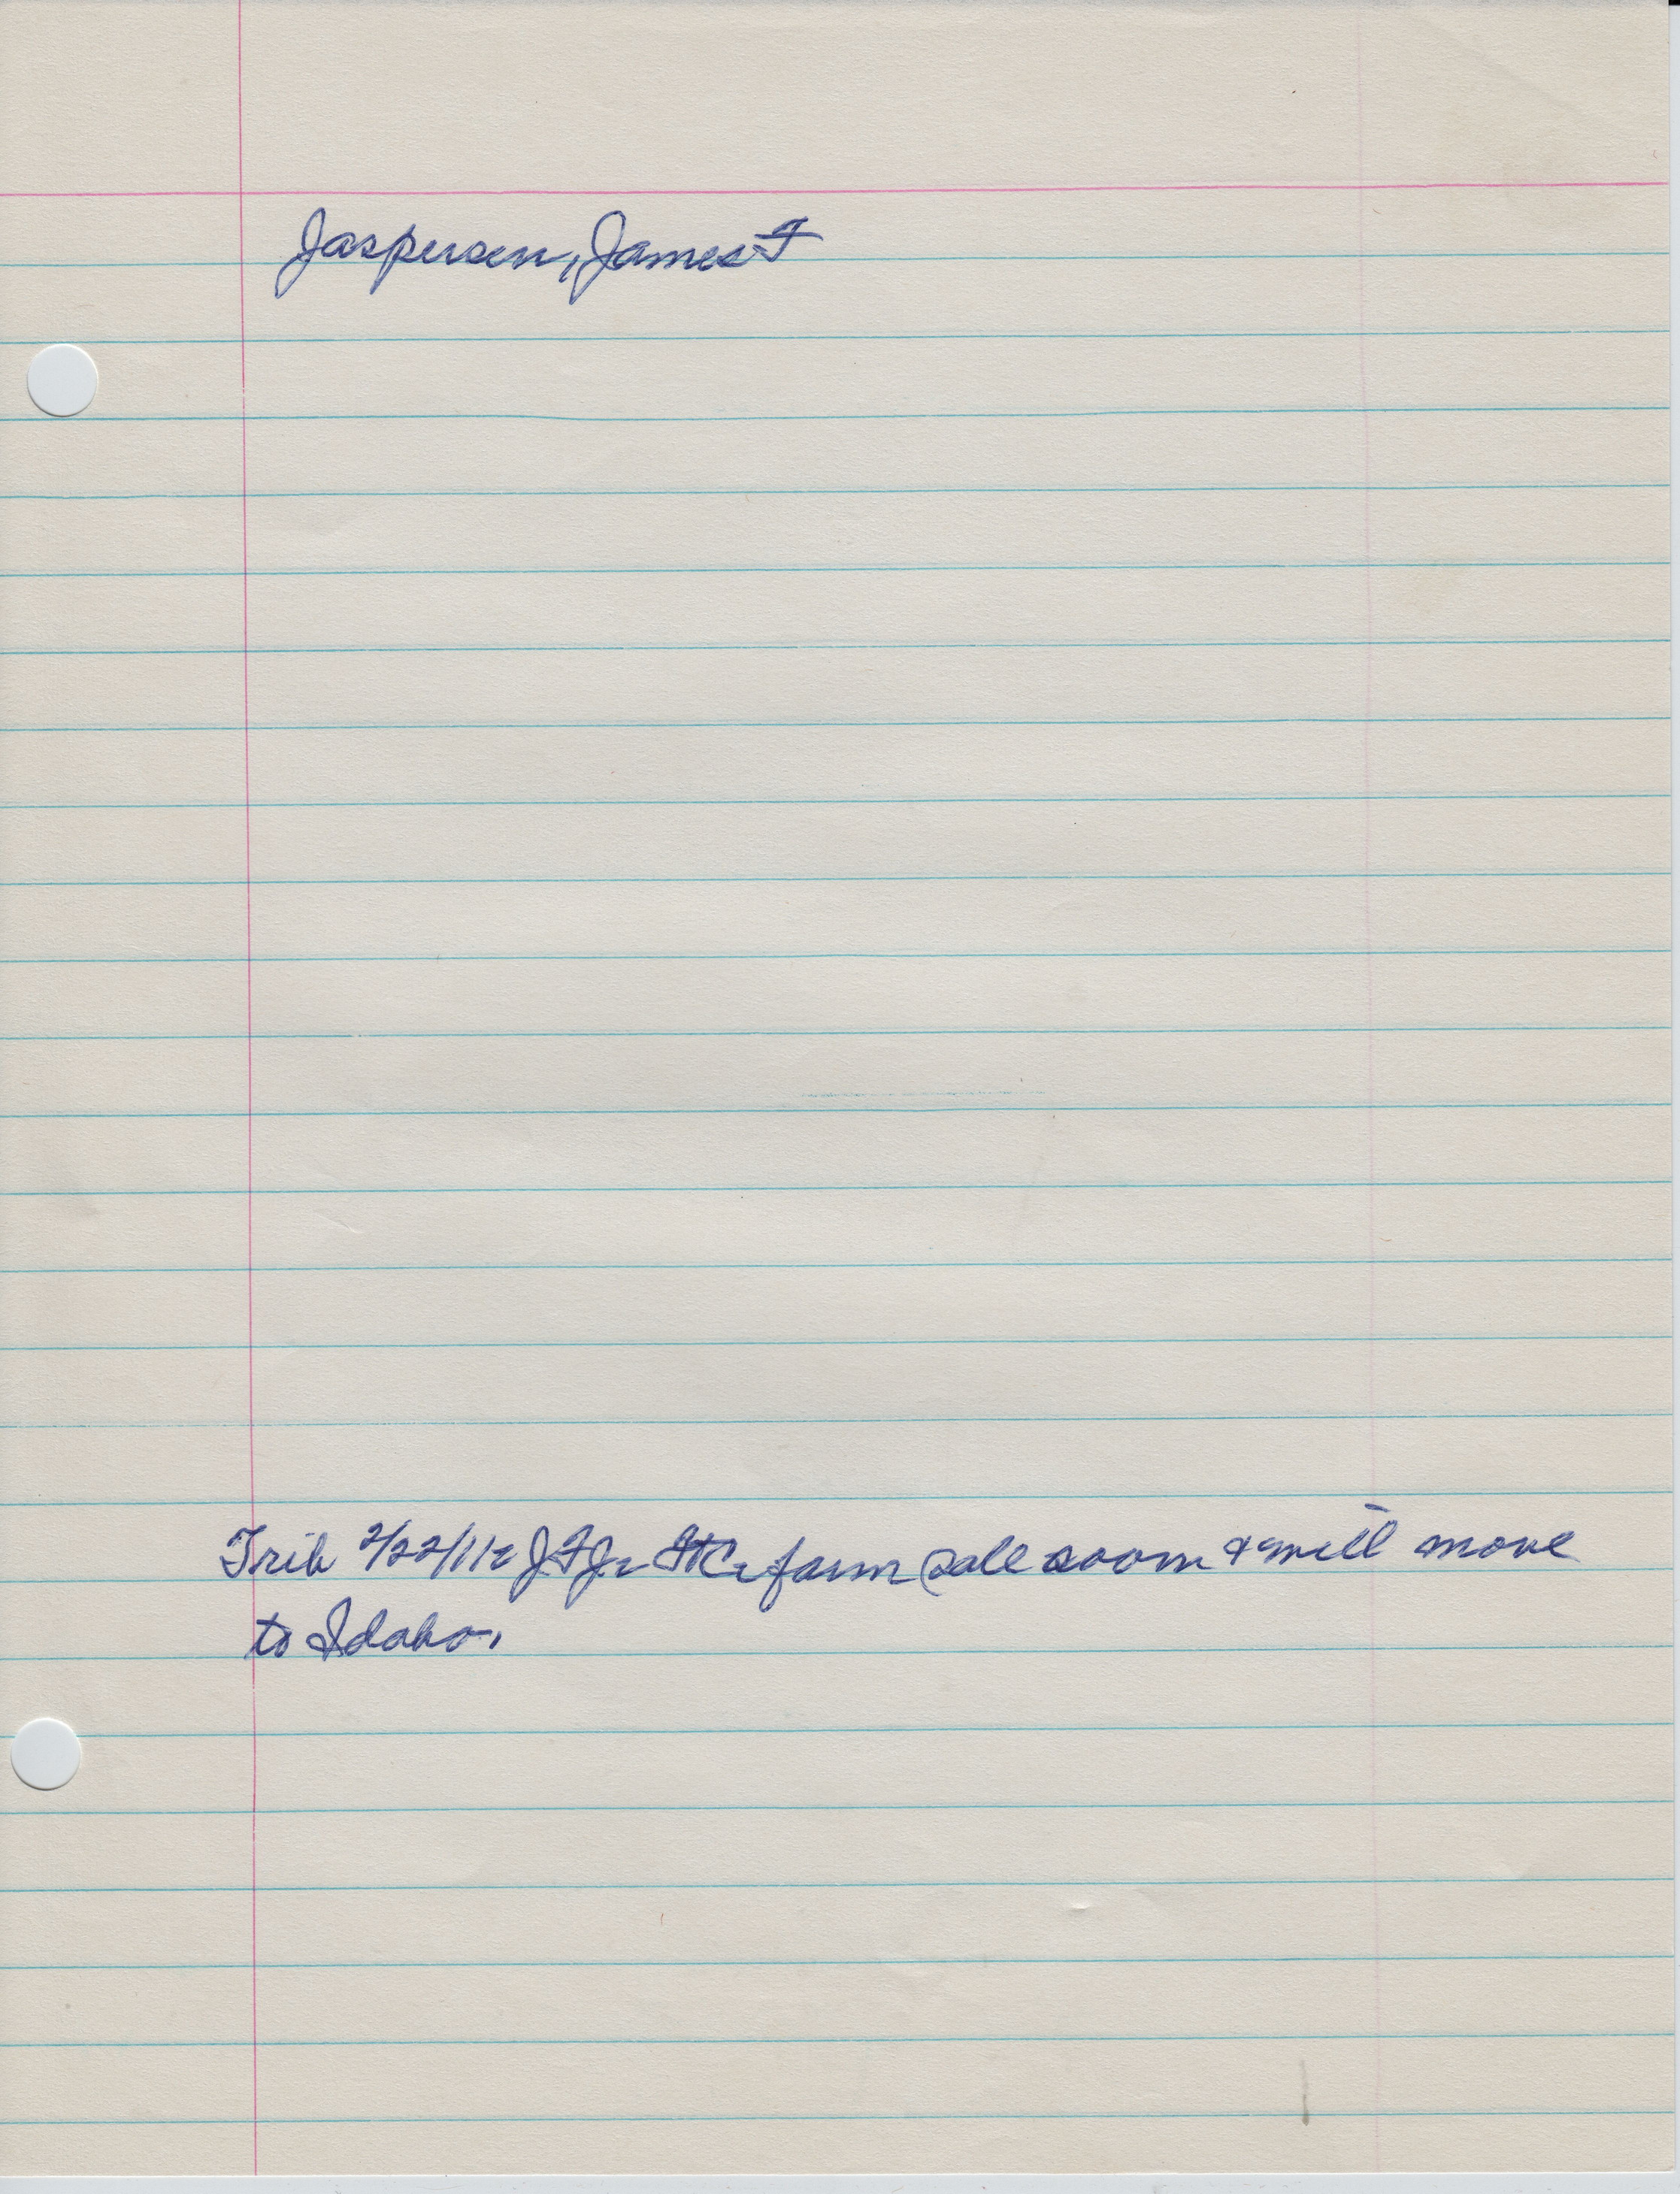 Jaspersen, James F
Trib 2/22/112 JFJ- farm sale soon & will move
to Idaho.